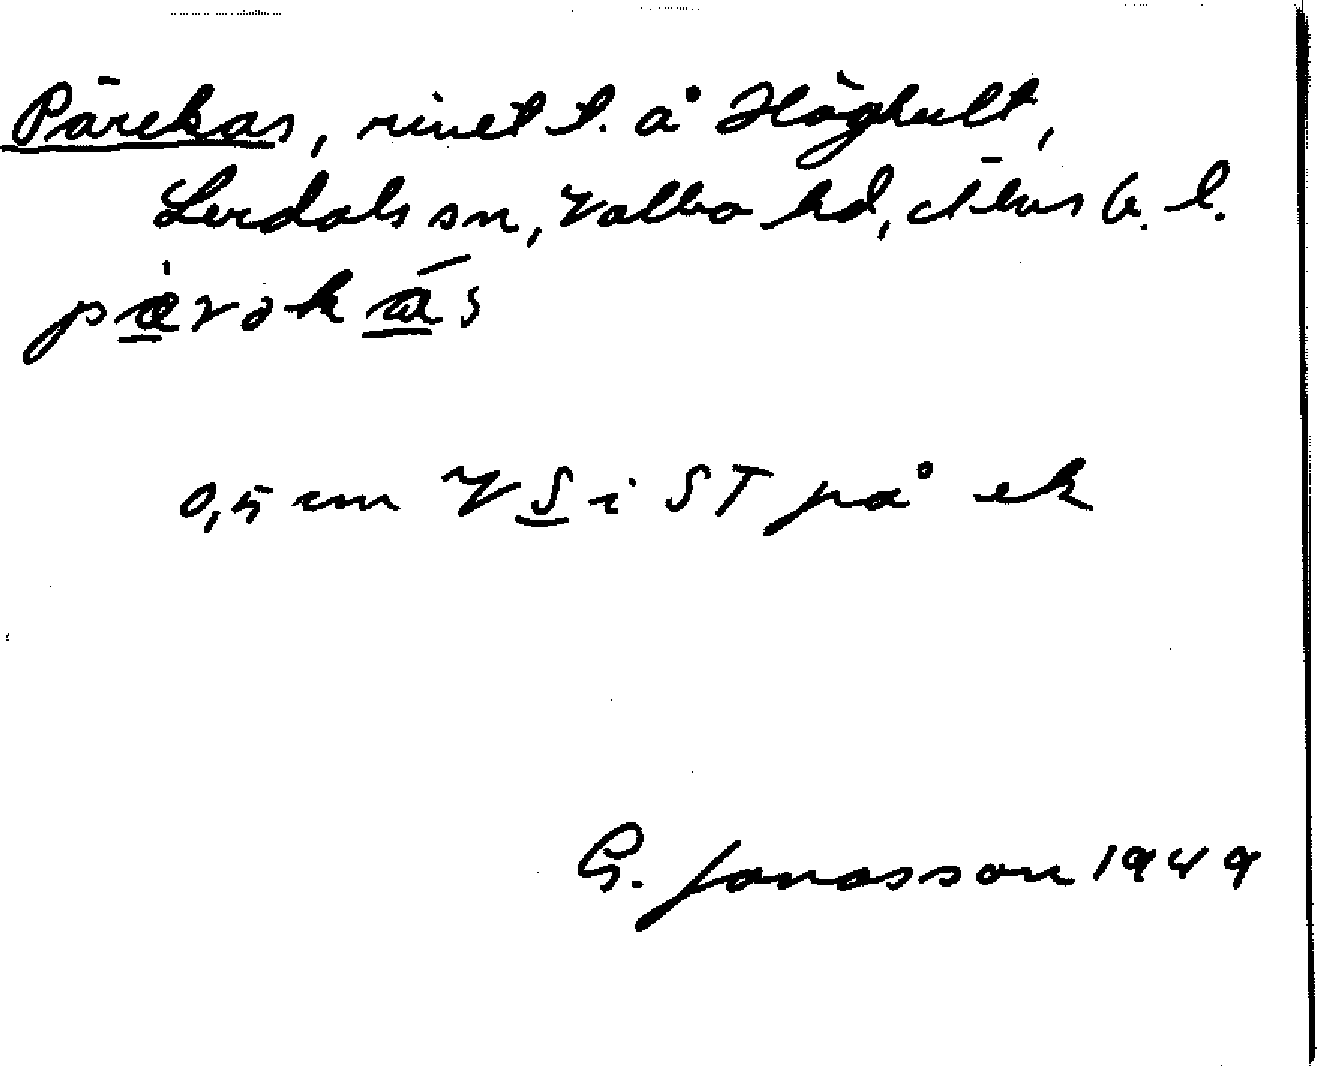 Pärekas, rivet t. å Höghult,
Lerdals sn, Valbo hd, Älvsb. l.
pærəkás
0,5 cm V S i ST på ek
G. Jonasson 1949